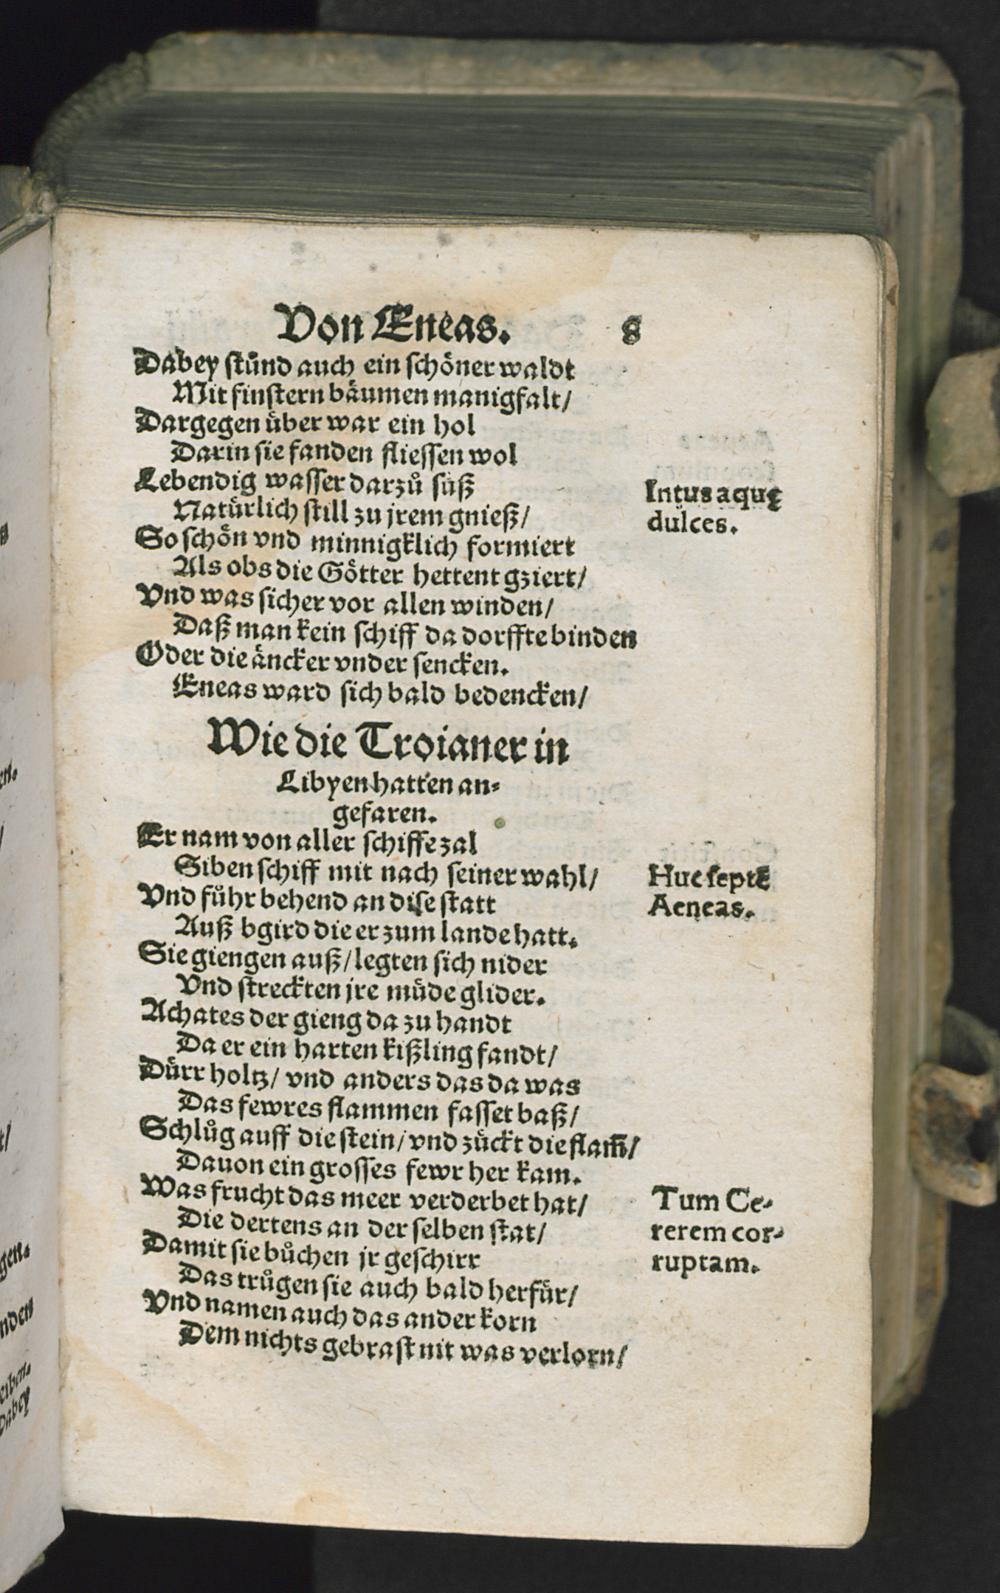 Von Eneas. 8
Dabey stůnd auch ein schöner waldt
Mit finstern bäumen manigfalt/
Dargegen über war ein hol
Darin sie fanden fliessen wol
Lebendig wasser darzů süß
Natürlich still zu jrem gnieß/
So schön vnd minnigklich formiert
Als obs die Götter hettent gziert/
Vnd was sicher vor allen winden/
Daß man kein schiff da dorffte binden
Oder die äncker vnder sencken.
Eneas ward sich bald bedencken/
Intus aquę
dulces.
Wie die Troianer in
Libyen hatten an⸗
gefaren.
Er nam von aller schiffe zal
Siben schiff mit nach seiner wahl/
Vnd fůhr behend an dise statt
Auß bgird die er zum lande hatt.
Sie giengen auß/ legten sich nider
Vnd streckten jre müde glider.
Achates der gieng da zu handt
Da er ein harten kißling fandt/
Dürr holtz/ vnd anders das da was
Das fewres flammen fasset baß/
Schlůg auff die stein/ vnd zückt die flam̃/
Dauon ein grosses fewr her kam.
Was frucht das meer verderbet hat/
Die dertens an der selben stat/
Damit sie bůchen jr geschirr
Das trůgen sie auch bald herfür/
Vnd namen auch das ander korn
Dem nichts gebrast nit was verlorn/
Huc septẽ
Aeneas.
Tum Ce-
rerem cor-
ruptam.
en.
gen.
nden
eiben.
Dabey